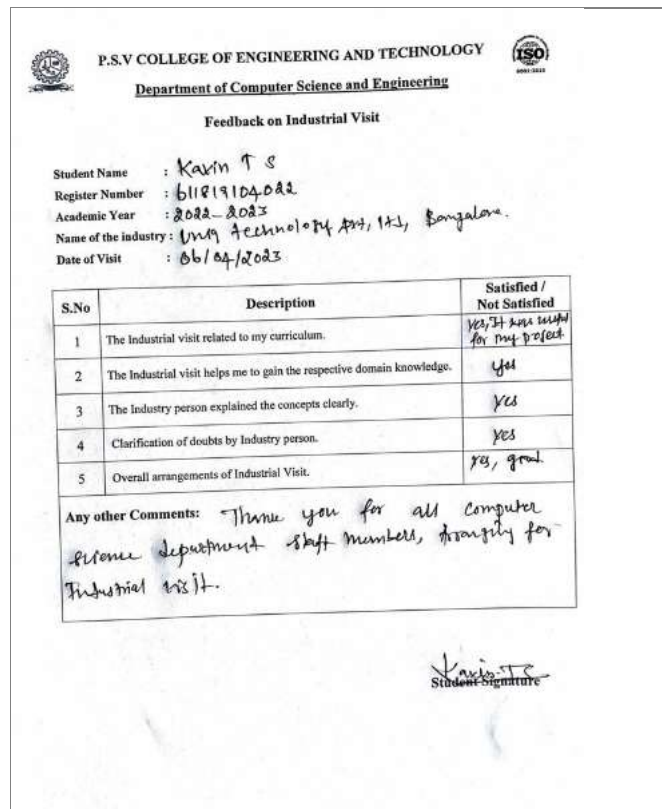 P.S.V COLLEGE OF ENGINEERING AND TECHNOLOGY
ISO
9001:2015
Department of Computer Science and Engineering
Feedback on Industrial Visit
Student Name : Kavin T S
Register Number : 611819104022
Academic Year : 2022-2023
Name of the industry : Uniq technology pvt, ltd, Bangalore.
Date of Visit : 06/04/2023
S.No Description Satisfied / Not Satisfied
1 The Industrial visit related to my curriculum. Yes, It was useful
for my project
2 The Industrial visit helps me to gain the respective domain knowledge. yes
3 The Industry person explained the concepts clearly. Yes
4 Clarification of doubts by Industry person. yes
5 Overall arrangements of Industrial Visit. yes, good
Any other Comments: Thank you for all computer
science department staff members, for
Industrial visit.
Kavin TS
Student Signature